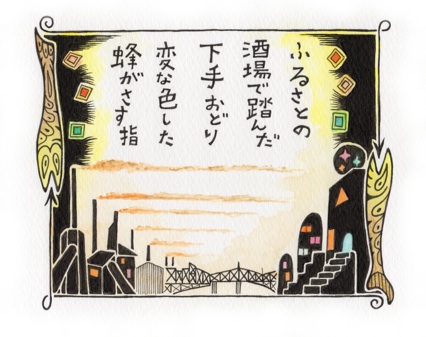 ふるさとの
酒場で踏んだ
下手おどり
変な色した
蜂がさす指